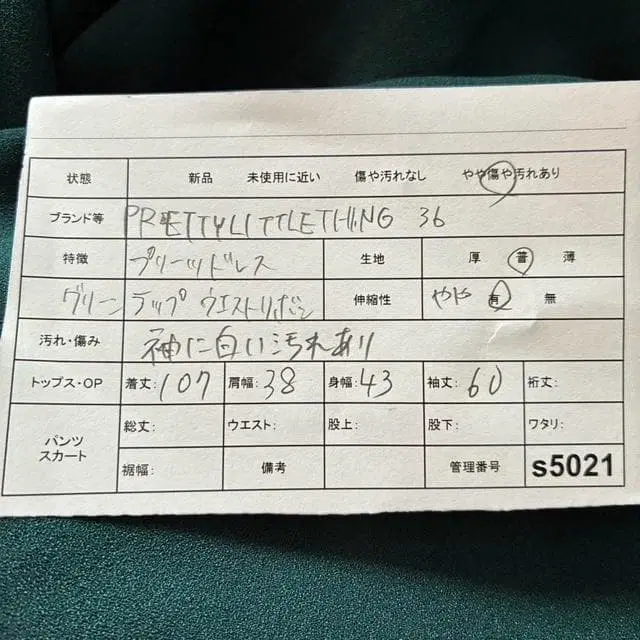 状態 新品 未使用に近い 傷や汚れなし やや傷や汚れあり
ブランド等 PRETTYLITTLETHING 36
特徴 プリーツドレス 生地 厚 普 薄
グリーン ラップ ウエストリボン 伸縮性 やや 有 無
汚れ・傷み 袖に白い汚れあり
トップス・OP 着丈:107 肩幅:38 身幅:43 袖丈:60 裄丈:
パンツ スカート 総丈: ウエスト: 股上: 股下: ワタリ:
裾幅: 備考 管理番号 s5021